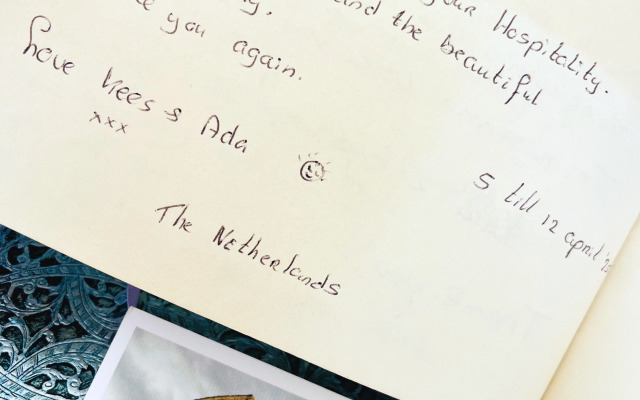 your Hospitality.
and the beautiful
you again.
Love Kees & Ada
xxx
5 till 12 april
The Netherlands